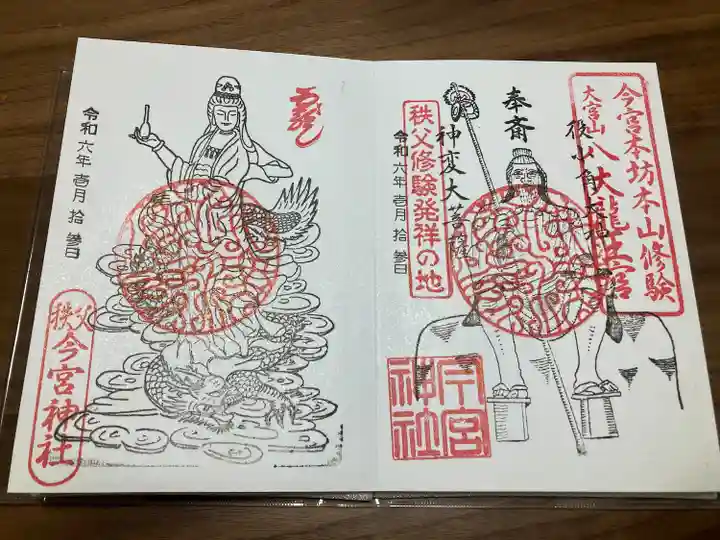 今宮本坊本山修験
大宮山
八大龍王宮
役小角大神
奉斎
神変大菩薩
秩父修験発祥の地
令和六年壱月拾参日
今宮神社
令和六年壱月拾参日
秩父今宮神社